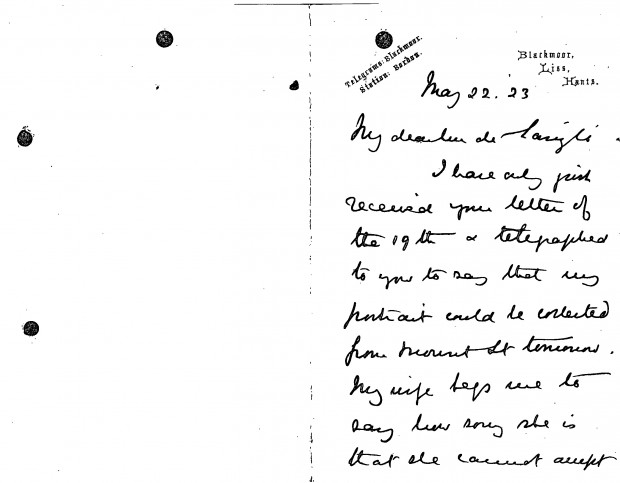 Telegrams: Blackmoor.
Station: Bordon.
Blackmoor,
Liss,
Hants.
May 22. '23
My dear de Laszlo
I have only just
received your letter of
the 19th & telegraphed
to you to say that my
portrait could be collected
from Mount St tomorrow.
My wife begs me to
say how sorry she is
that she cannot accept